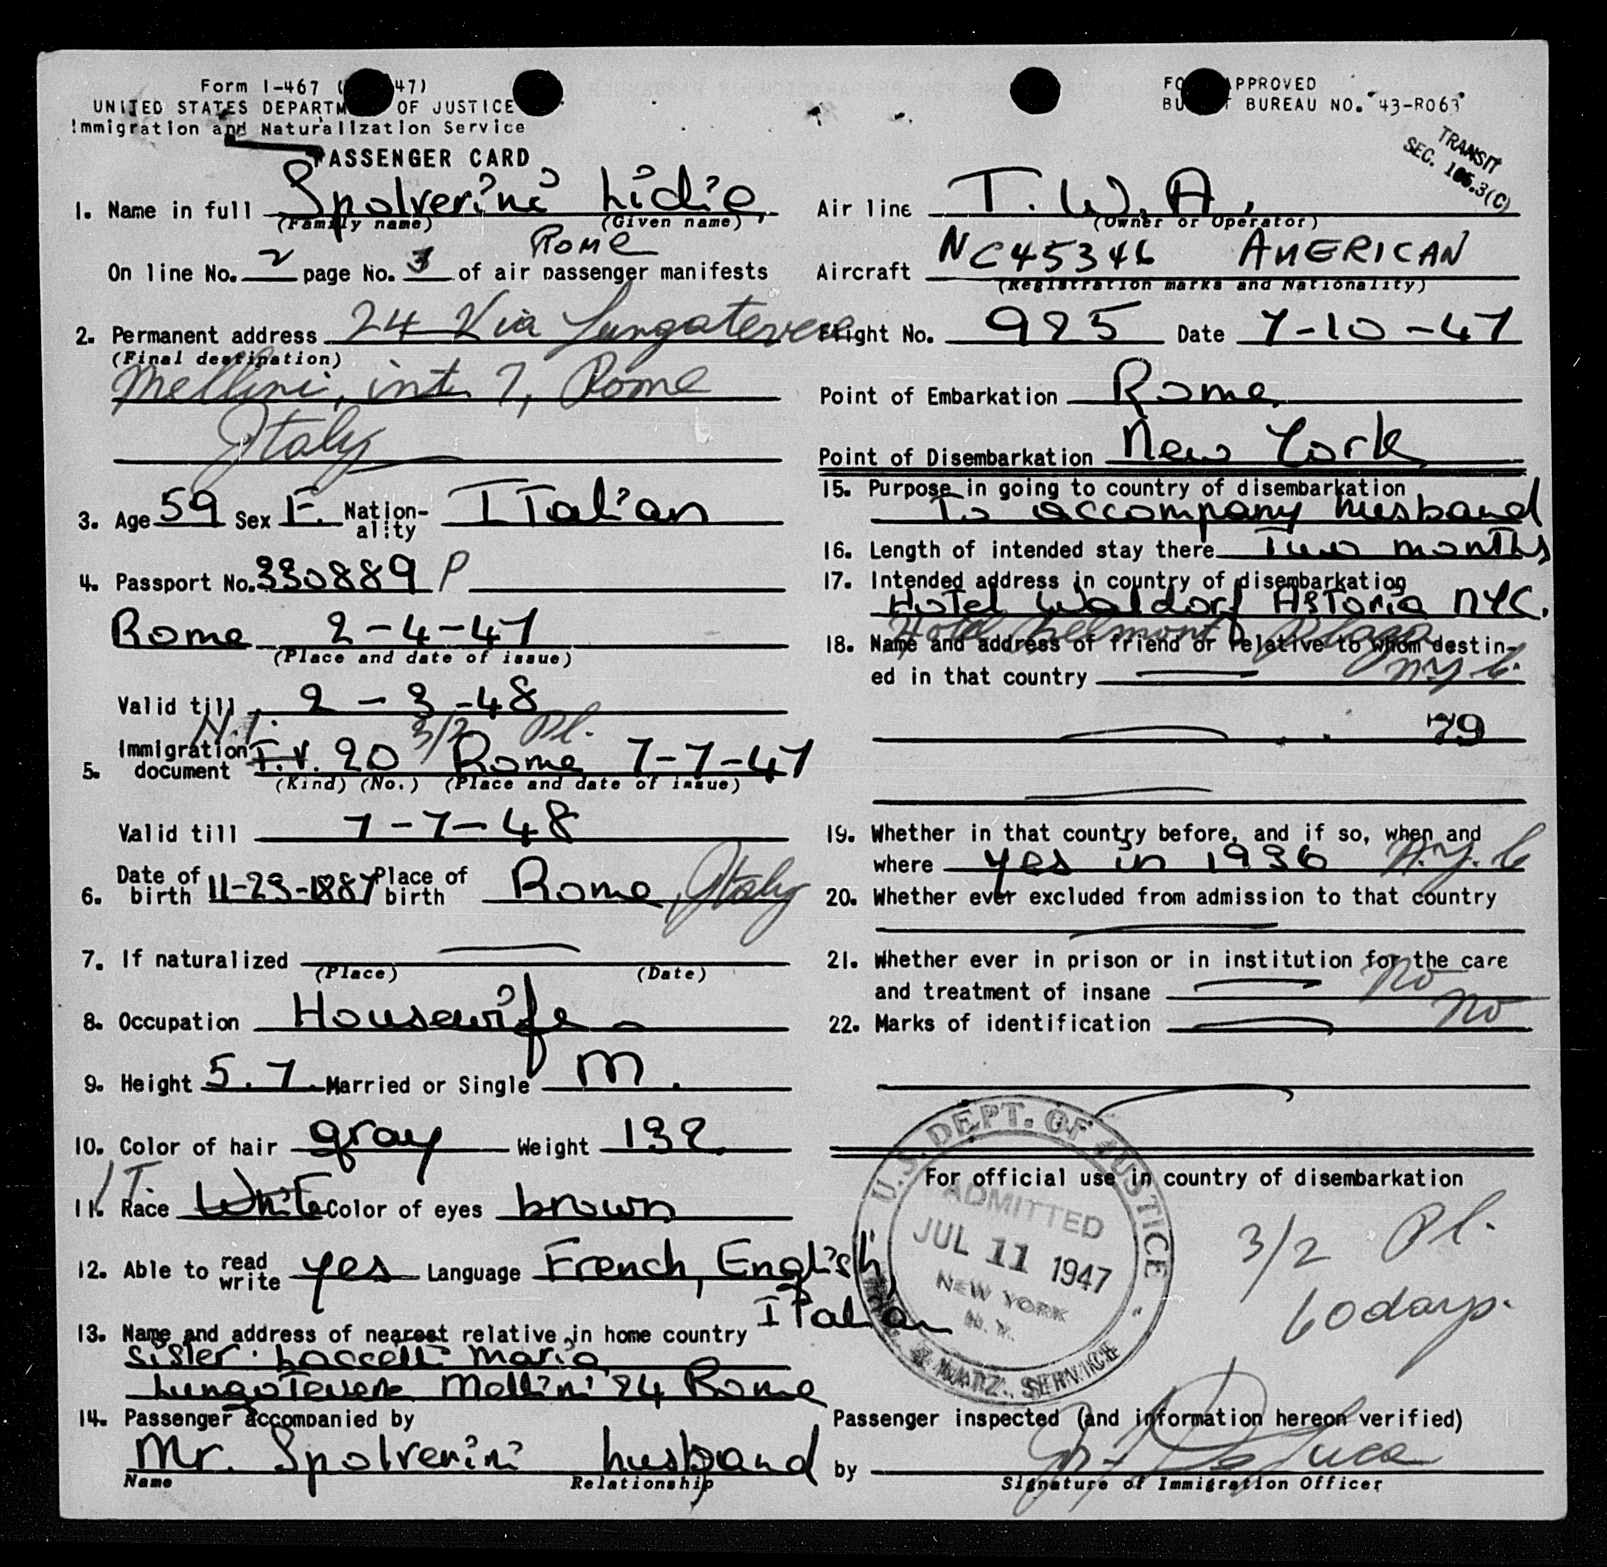 Form I-467 ( 47)
UNITED STATES DEPARTM OF JUSTICE
Immigration and Naturalization Service
PASSENGER CARD
1. Name in full Spolverini Lidia
(Family name) (Given name)
Rome
On line No. 2 page No. 3 of air passenger manifests
2. Permanent address 24 Via Lungatevere
(Final destination)
Mellini, int. 7, Rome
Italy
3. Age 59 Sex F. Nationality ITalian
4. Passport No. 330889 P
Rome 2-4-47
(Place and date of issue)
Valid till 2-3-48
N.I. 3/2 Pl.
5. Immigration document T.V. 20 Rome 7-7-47
(Kind) (No.) (Place and date of issue)
Valid till 7-7-48
6. Date of birth 11-23-1887 Place of birth Rome, Italy
7. If naturalized
(Place) (Date)
8. Occupation Housewife
9. Height 5.7 Married or Single M.
10. Color of hair gray Weight 132
IT.
11. Race White Color of eyes brown
12. Able to read write yes Language French, English,
ITalian
13. Name and address of nearest relative in home country
Sister: Maria
Lungotevere Mellini 24 Rome
14. Passenger accompanied by
Mr. Spolverini husband
Name Relationship
FO APPROVED
BU T BUREAU NO. 43-R063
TRANSIT
SEC. 165.3(C)
Air line T.W.A.
(Owner or Operator)
Aircraft NC45346 AMERICAN
(Registration marks and Nationality)
Flight No. 925 Date 7-10-47
Point of Embarkation Rome
Point of Disembarkation New York
15. Purpose in going to country of disembarkation
To accompany husband
16. Length of intended stay there Two months
17. Intended address in country of disembarkation
Hotel Waldorf Astoria NYC.
Hotel Belmont Plaza
18. Name and address of friend or relative to whom destin-
ed in that country N.Y.C.
79
19. Whether in that country before, and if so, when and
where yes in 1936 N.Y.C
20. Whether ever excluded from admission to that country
21. Whether ever in prison or in institution for the care
and treatment of insane no
22. Marks of identification no
For official use in country of disembarkation
U.S. DEPT. OF JUSTICE
ADMITTED
JUL 11 1947
NEW YORK
N.Y.
IMM. & NATZ. SERVICE
3/2 Pl.
60 days.
Passenger inspected (and information hereon verified)
by De Luca
Signature of Immigration Officer